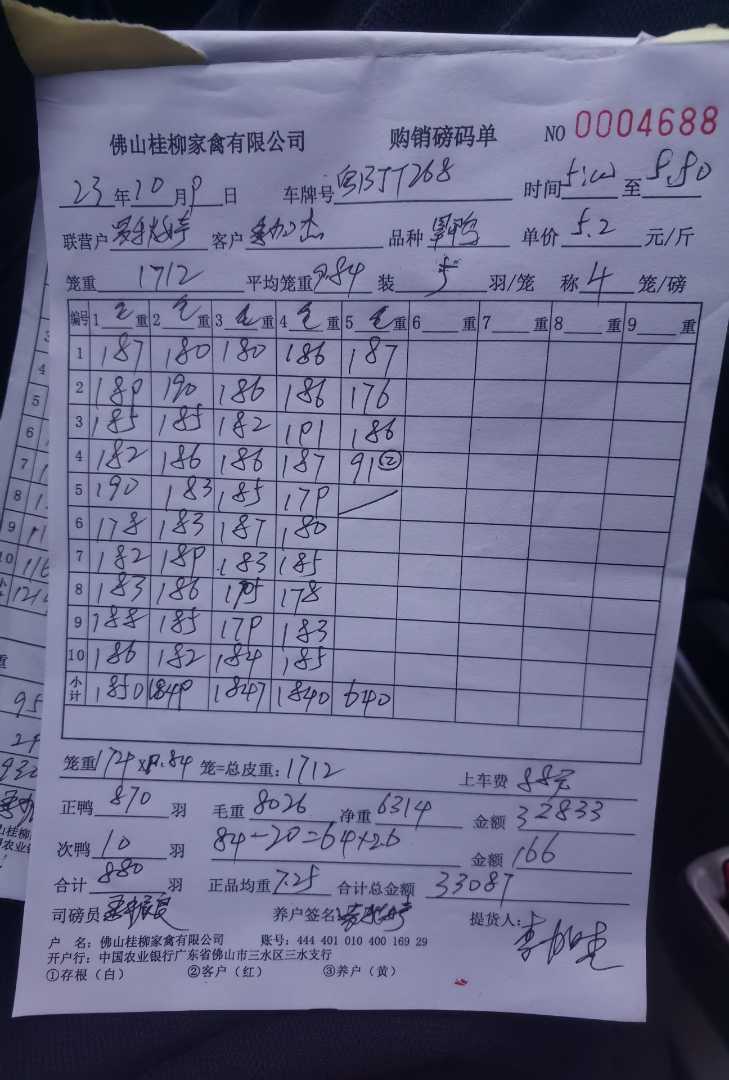 佛山桂柳家禽有限公司 购销磅码单 NO 0004688
23年10月9日 车牌号 粤BJT268 时间 5:00 至 5:50
联营户 客户 品种 单价 5.2 元/斤
笼重 1712 平均笼重 9.84 装 5 羽/笼 称 4 笼/磅
编号 1 毛重 2 毛重 3 毛重 4 毛重 5 毛重 6 重 7 重 8 重 9 重
1 187 180 180 186 187
2 189 190 186 186 176
3 185 185 182 191 186
4 182 186 186 187 91②
5 190 183 185 179
6 178 183 187 180
7 182 189 183 185
8 183 186 195 178
9 188 185 179 183
10 186 182 184 185
小计 1850 1849 1847 1840 640
笼重 174×9.84 笼=总皮重:1712 上车费 88元
正鸭 870 羽 毛重 8026 净重 6314 金额 32833
次鸭 10 羽 84-20=64×2.6 金额 166
合计 880 羽 正品均重 7.25 合计总金额 33087
司磅员 养户签名 提货人:
户 名:佛山桂柳家禽有限公司 账号:444 401 010 400 169 29
开户行:中国农业银行广东省佛山市三水区三水支行
①存根(白) ②客户(红) ③养户(黄)